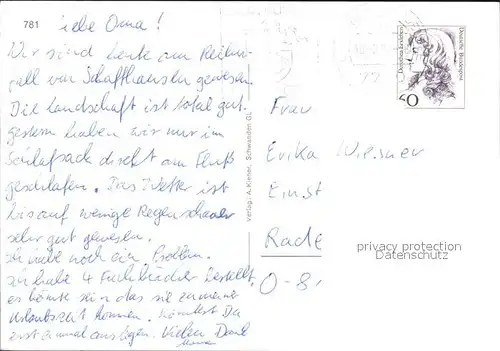 781
liebe Oma!
Wir sind heute am Reihn-
fall von Schaffhausen gewesen.
Die Landschaft ist total gut.
gestern haben wir nur im
Schlafsack direkt am Fluß
geschlafen. Das Wetter ist
bis auf wenige Regenschauer
sehr gut gewesen.
Ich habe noch ein Problem.
Ich habe 4 Fachbücher bestellt,
es könnte sein das sie zu meiner
Urlaubszeit kommen. Könntest Du
erst einmal auslegen. Vielen Dank
Verlag: A. Kiener, Schwanden GL
Dorothea Erxleben
Deutsche Bundespost
60
Frau
Erika Wiesner
Einst
Rade
O-8
privacy protection
Datenschutz